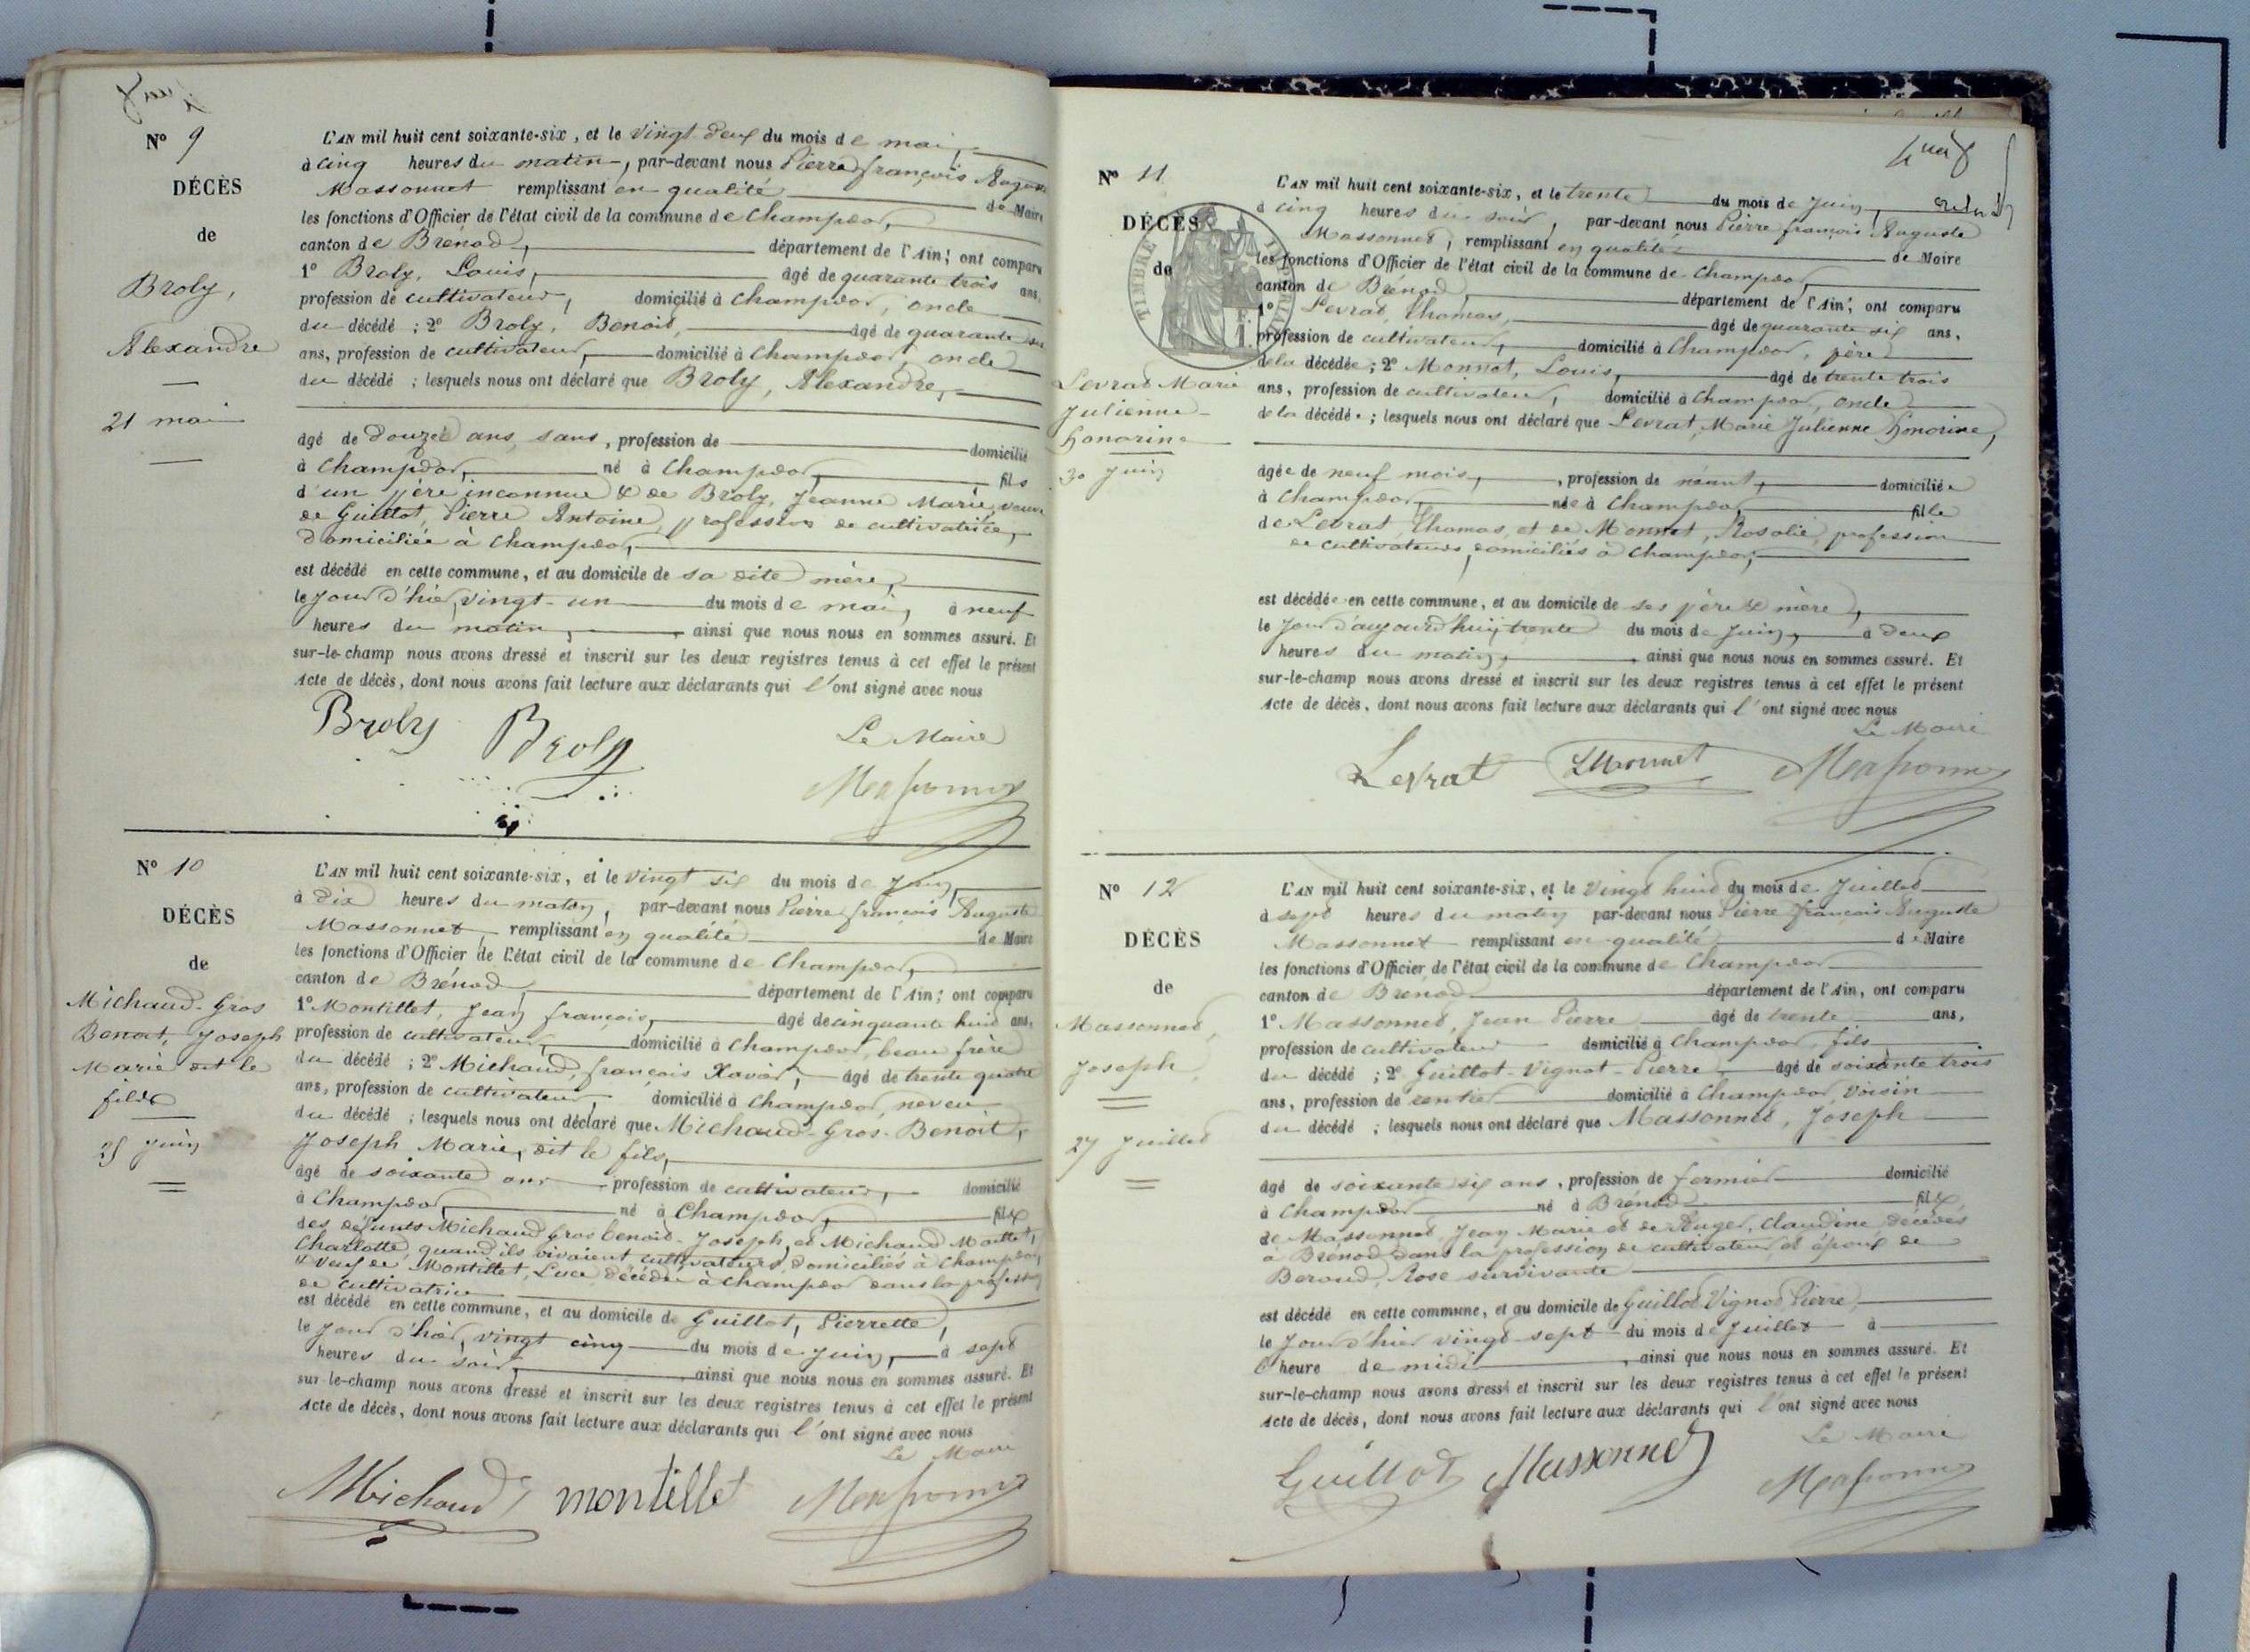 N° 9
DÉCÈS
de
Broly,
Alexandre
21 mai
L'AN mil huit cent soixante-six, et le vingt deux du mois de mai,
à cinq heures du matin, par-devant nous Pierre françois Auguste
Massonnet remplissant en qualité de Maire
les fonctions d'Officier de l'état civil de la commune de Champdor,
canton de Brénod, département de l'Ain; ont comparu
1° Broly, Louis, âgé de quarante trois ans,
profession de cultivateur, domicilié à Champdor, oncle
du décédé ; 2° Broly, Benoit, âgé de quarante
ans, profession de cultivateur, domicilié à Champdor, oncle
du décédé ; lesquels nous ont déclaré que Broly, Alexandre,
âgé de douze ans, sans, profession de domicilié
à Champdor, né à Champdor, fils
d'un père inconnue & de Broly, Jeanne Marie, veuve
de Guillot, Pierre Antoine, profession de cultivatrice,
domiciliée à Champdor,
est décédé en cette commune, et au domicile de sa dite mère,
le jour d'hier, vingt-un du mois de mai, à neuf
heures du matin, , ainsi que nous nous en sommes assuré. Et
sur-le-champ nous avons dressé et inscrit sur les deux registres tenus à cet effet le présent
Acte de décès, dont nous avons fait lecture aux déclarants qui l'ont signé avec nous
Le Maire
Broly Broly Massonnet
N° 10
DÉCÈS
de
Michaud-Gros
Benoit, Joseph
Marie dit le
fils
25 Juin
L'AN mil huit cent soixante-six, et le vingt six du mois de Juin,
à dix heures du matin, par-devant nous Pierre françois Auguste
Massonnet, remplissant en qualité de Maire
les fonctions d'Officier de l'état civil de la commune de Champdor,
canton de Brénod, département de l'Ain; ont comparu
1° Montillet, Jean françois, âgé de cinquante huit ans,
profession de cultivateur, domicilié à Champdor, beau frère
du décédé ; 2° Michaud, françois Xavier, âgé de trente quatre
ans, profession de cultivateur, domicilié à Champdor, neveu
du décédé ; lesquels nous ont déclaré que Michaud-Gros-Benoit,
Joseph Marie, dit le fils,
âgé de soixante ans profession de cultivateur, domicilié
à Champdor, né à Champdor, fils
des défunts Michaud Gros benoit-Joseph, et Michaud
Charlotte, quand ils vivaient cultivateurs, domiciliés à Champdor,
& veuf de Montillet, Luce, décédée à Champdor dans la profession
de cultivatrice
est décédé en cette commune, et au domicile de Guillot, Pierrette,
le jour d'hier, vingt cinq du mois de Juin, à sept
heures du soir, , ainsi que nous nous en sommes assuré. Et
sur-le-champ nous avons dressé et inscrit sur les deux registres tenus à cet effet le présent
Acte de décès, dont nous avons fait lecture aux déclarants qui l'ont signé avec nous
Le Maire
Michaud montillet Massonnet
N° 11
DÉCÈS
de
TIMBRE IMPERIAL
Levrat Marie
Julienne
honorine
30 Juin
L'AN mil huit cent soixante-six, et le trente du mois de Juin,
à cinq heures du soir, par-devant nous Pierre françois Auguste
Massonnet, remplissant en qualité de Maire
les fonctions d'Officier de l'état civil de la commune de Champdor,
canton de Brénod, département de l'Ain; ont comparu
1° Levrat, Thomas, âgé de quarante six ans,
profession de cultivateur, domicilié à Champdor, père
de la décédée ; 2° Monnet, Louis, âgé de trente trois
ans, profession de cultivateur, domicilié à Champdor, oncle
de la décédée ; lesquels nous ont déclaré que Levrat, Marie Julienne honorine,
âgée de neuf mois, , profession de néant, domiciliée
à Champdor, née à Champdor, fille
de Levrat, Thomas, et de Monnet, Rosalie, profession
de cultivateurs, domiciliés à Champdor,
est décédée en cette commune, et au domicile de ses père & mère,
le jour d'aujourd'huy trente du mois de Juin, à deux
heures du matin, , ainsi que nous nous en sommes assuré. Et
sur-le-champ nous avons dressé et inscrit sur les deux registres tenus à cet effet le présent
Acte de décès, dont nous avons fait lecture aux déclarants qui l'ont signé avec nous
Le Maire
Levrat LMonnet Massonnet
N° 12
DÉCÈS
de
Massonnet,
Joseph,
27 Juillet
L'AN mil huit cent soixante-six, et le vingt huit du mois de Juillet
à sept heures du matin par-devant nous Pierre françois Auguste
Massonnet remplissant en qualité de Maire
les fonctions d'Officier de l'état civil de la commune de Champdor
canton de Brénod département de l'Ain, ont comparu
1° Massonnet, Jean Pierre âgé de trente ans,
profession de cultivateur domicilié à Champdor, fils
du décédé ; 2° Guillot-Vignot-Pierre âgé de soixante trois
ans, profession de rentier domicilié à Champdor, voisin
du décédé ; lesquels nous ont déclaré que Massonnet, Joseph
âgé de soixante six ans, profession de fermier domicilié
à Champdor né à Brénod fils
de Massonnet, Jean Marie et de Auger, Claudine, décédés
à Brénod dans la profession de cultivateur, et époux de
Beroud, Rose survivante
est décédé en cette commune, et au domicile de Guillot Vignot Pierre,
le jour d'hier vingt-sept du mois de Juillet à
l'heure de midi , ainsi que nous nous en sommes assuré. Et
sur-le-champ nous avons dressé et inscrit sur les deux registres tenus à cet effet le présent
Acte de décès, dont nous avons fait lecture aux déclarants qui l'ont signé avec nous
Le Maire
Guillot Massonnet Massonnet